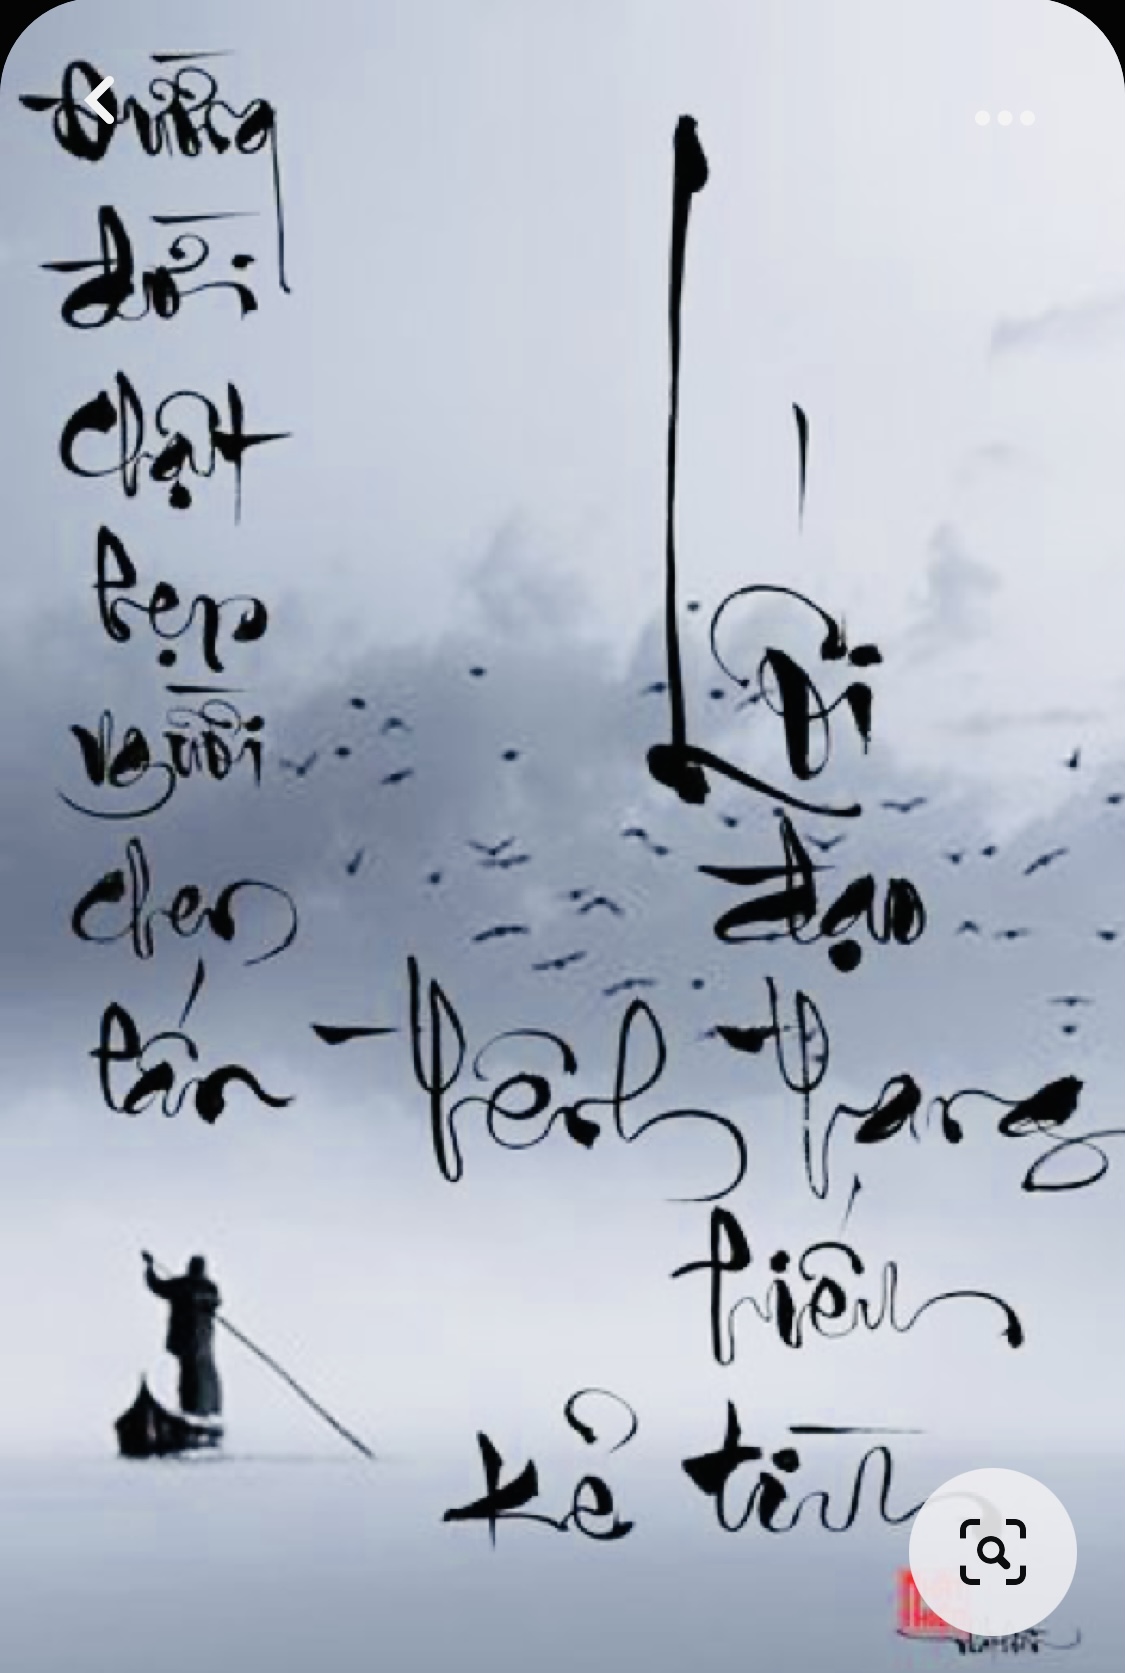 Đường
đời
chật
hẹp
người
chen
lấn
Lối
đạo
thênh thang
hiếm
kẻ tìm